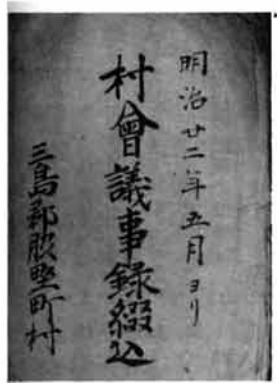 明治廿二年五月ヨリ
村會議事録綴込
三島郡脇野町村